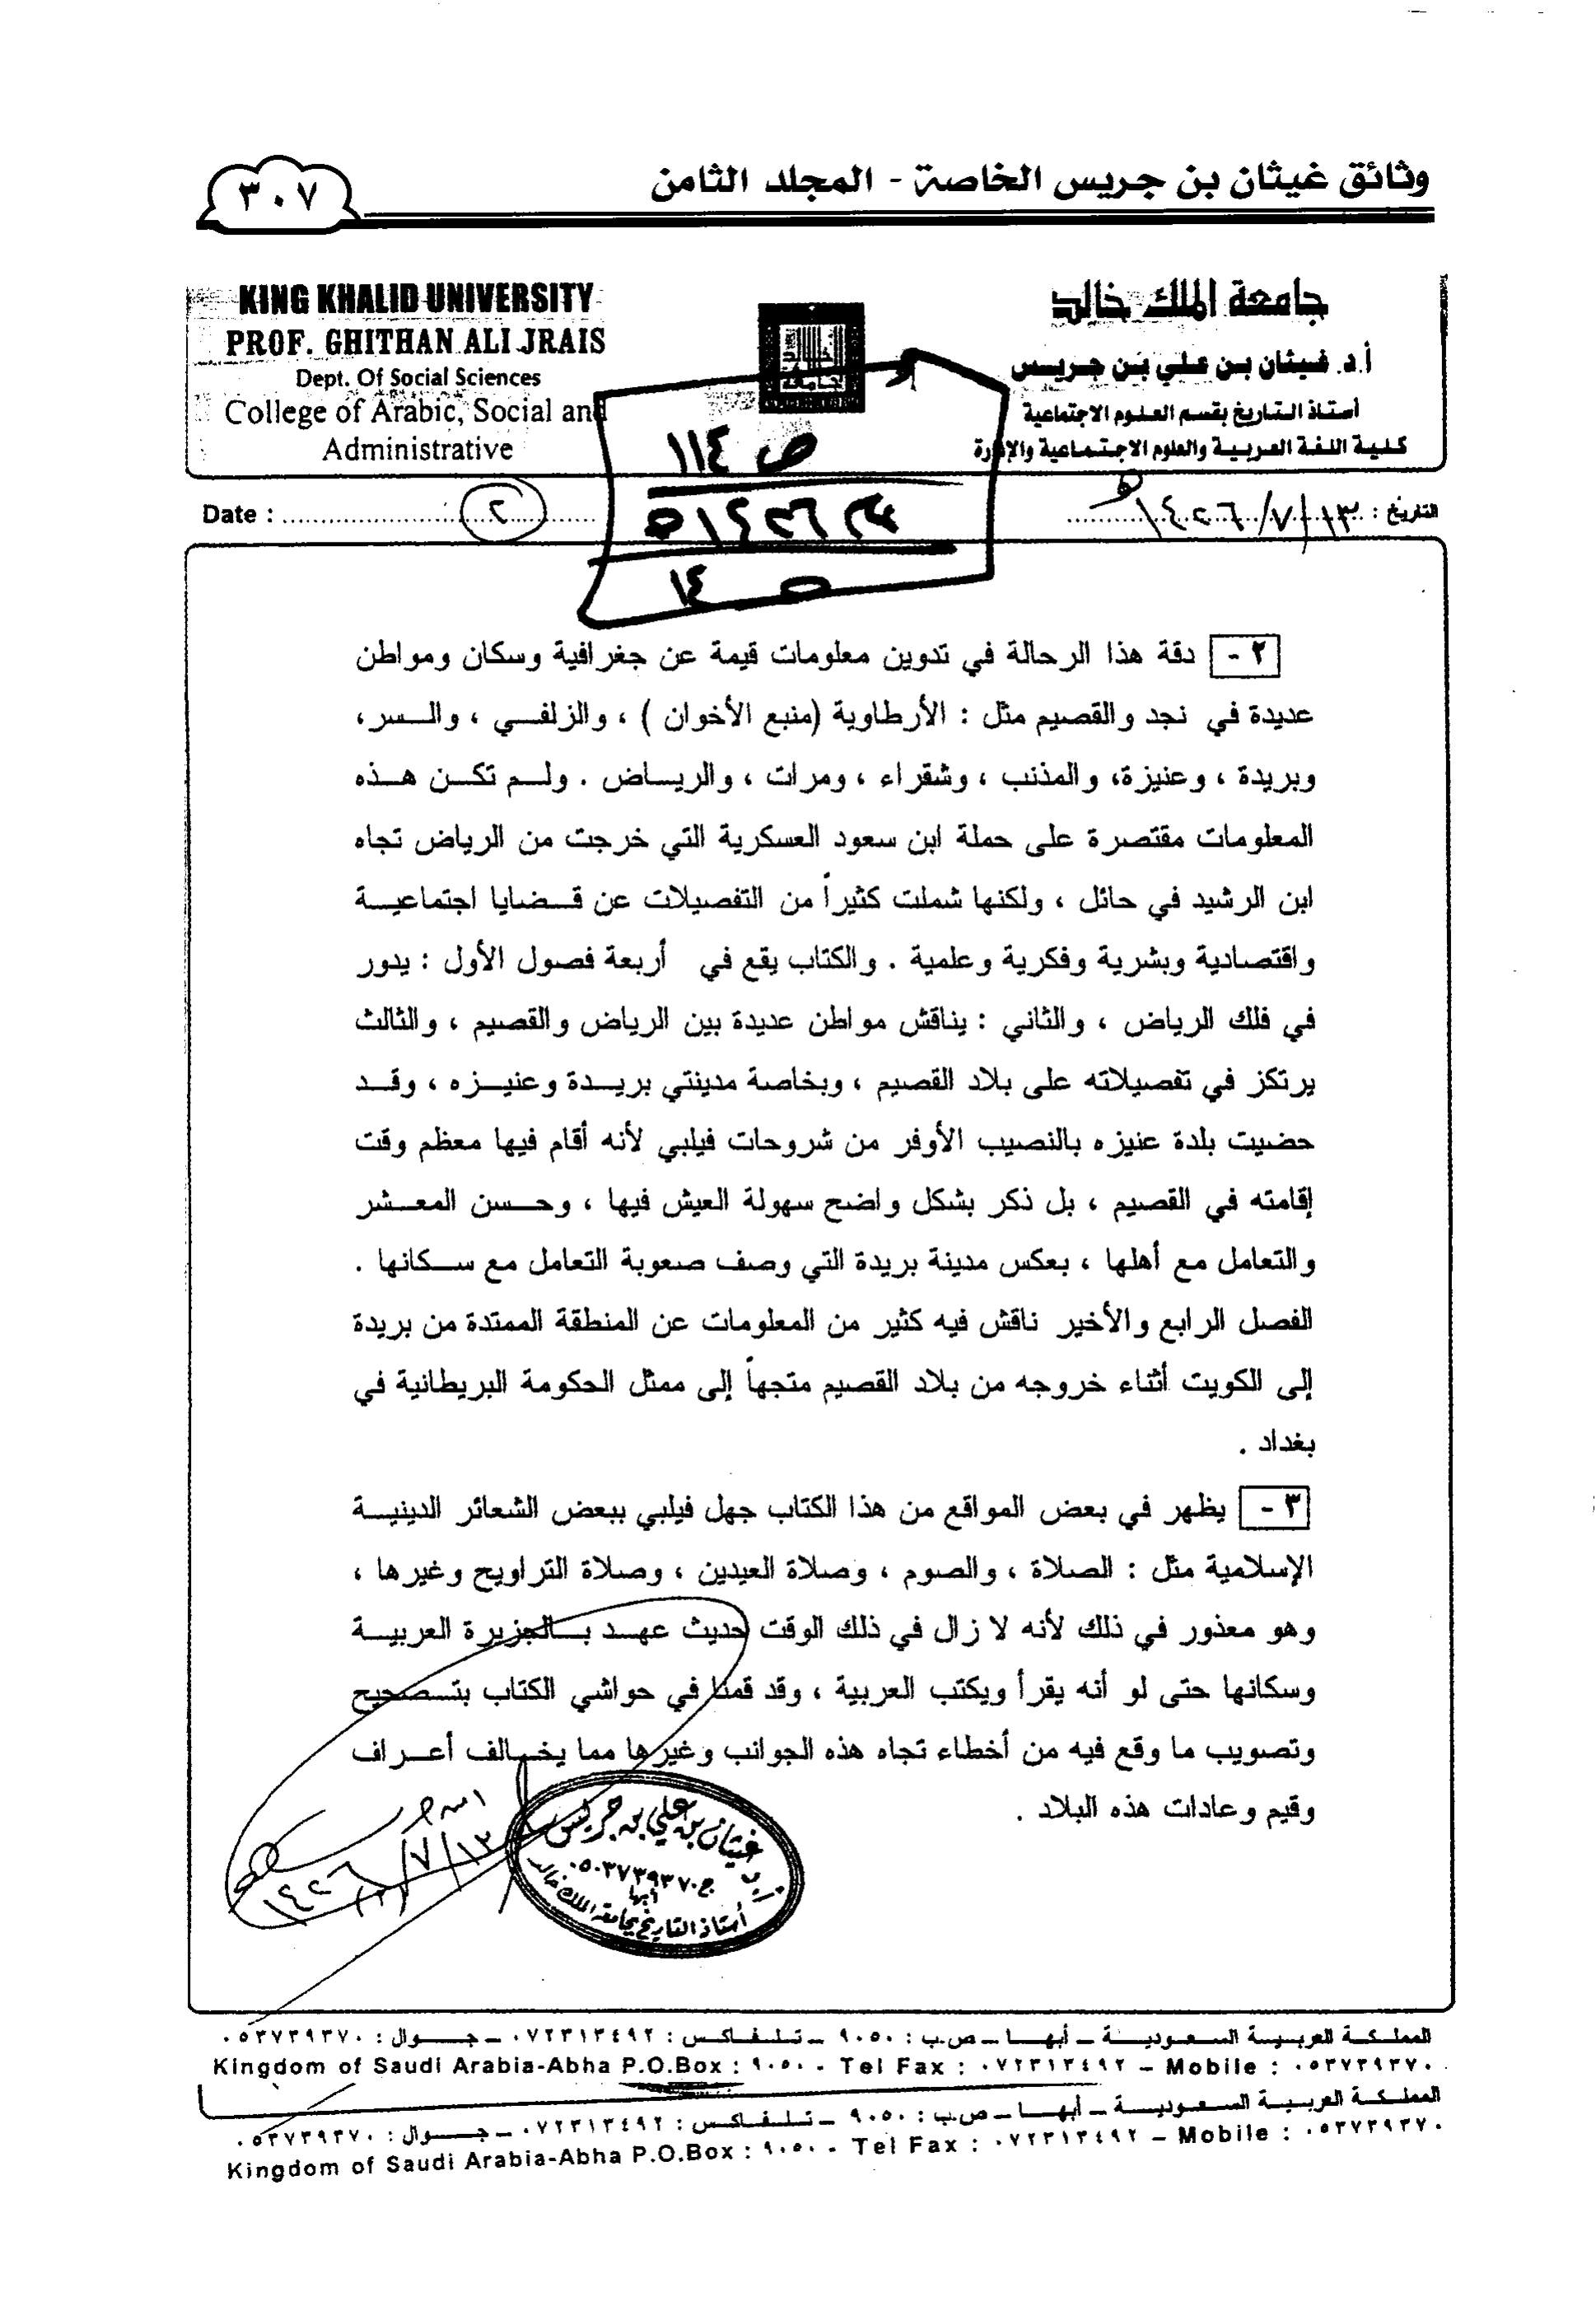 وثائق غيثان بن جريس الخاصة - المجلد الثامن
٣٠٧
جامعة الملك خالد
أ.د. غيثان بن علي بن جريس
أستاذ التاريخ بقسم العلوم الاجتماعية
كلية اللغة العربية والعلوم الاجتماعية والإدارة
KING KHALID UNIVERSITY
PROF. GHITHAN ALI JRAIS
Dept. Of Social Sciences
College of Arabic, Social and
Administrative
ص ١١٤
ص ١٤
التاريخ : ١٣/٧/١٤٢٦هـ
Date : ٢
٢- دقة هذا الرحالة في تدوين معلومات قيمة عن جغرافية وسكان ومواطن
عديدة في نجد والقصيم مثل : الأرطاوية (منبع الأخوان ) ، والزلفي ، والسر،
وبريدة ، وعنيزة، والمذنب ، وشقراء ، ومرات ، والرياض . ولم تكن هذه
المعلومات مقتصرة على حملة ابن سعود العسكرية التي خرجت من الرياض تجاه
ابن الرشيد في حائل ، ولكنها شملت كثيراً من التفصيلات عن قضايا اجتماعية
واقتصادية وبشرية وفكرية وعلمية . والكتاب يقع في أربعة فصول الأول : يدور
في فلك الرياض ، والثاني : يناقش مواطن عديدة بين الرياض والقصيم ، والثالث
يرتكز في تفصيلاته على بلاد القصيم ، وبخاصة مدينتي بريدة وعنيزه ، وقد
حضيت بلدة عنيزه بالنصيب الأوفر من شروحات فيلبي لأنه أقام فيها معظم وقت
إقامته في القصيم ، بل ذكر بشكل واضح سهولة العيش فيها ، وحسن المعشر
والتعامل مع أهلها ، بعكس مدينة بريدة التي وصف صعوبة التعامل مع سكانها .
الفصل الرابع والأخير ناقش فيه كثير من المعلومات عن المنطقة الممتدة من بريدة
إلى الكويت أثناء خروجه من بلاد القصيم متجهاً إلى ممثل الحكومة البريطانية في
بغداد .
٣- يظهر في بعض المواقع من هذا الكتاب جهل فيلبي ببعض الشعائر الدينية
الإسلامية مثل : الصلاة ، والصوم ، وصلاة العيدين ، وصلاة التراويح وغيرها ،
وهو معذور في ذلك لأنه لا زال في ذلك الوقت حديث عهد بالجزيرة العربية
وسكانها حتى لو أنه يقرأ ويكتب العربية ، وقد قمنا في حواشي الكتاب بتصحيح
وتصويب ما وقع فيه من أخطاء تجاه هذه الجوانب وغيرها مما يخالف أعراف
وقيم وعادات هذه البلاد .
غيثان بن علي بن جريس
ج ٠٥٠٣٧٣٩٣٧٠
أبها
أستاذ التاريخ بجامعة الملك خالد
١٣/٧/١٤٢٦
المملكة العربية السعودية – أبها – ص.ب : ٩٠٥٠ – تلفاكس : ٠٧٢٣١٣٤٩٢ – جوال : ٠٥٣٧٣٩٣٧٠
Kingdom of Saudi Arabia-Abha P.O.Box : ٩٠٥٠ - Tel Fax : ٠٧٢٣١٣٤٩٢ – Mobile : ٠٥٣٧٣٩٣٧٠
المملكة العربية السعودية – أبها – ص.ب : ٩٠٥٠ – تلفاكس : ٠٧٢٣١٣٤٩٢ – جوال : ٠٥٣٧٣٩٣٧٠
Kingdom of Saudi Arabia-Abha P.O.Box : ٩٠٥٠ - Tel Fax : ٠٧٢٣١٣٤٩٢ – Mobile : ٠٥٣٧٣٩٣٧٠